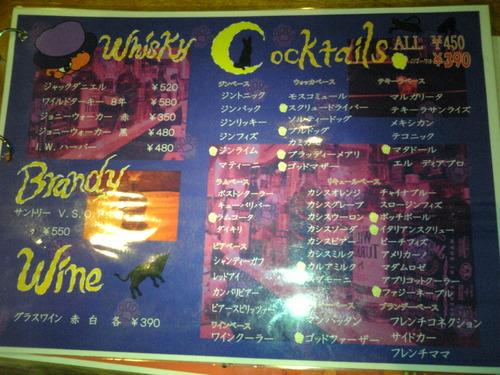 Whisky
ジャックダニエル ¥520
ワイルドターキー 8年 ¥580
ジョニーウォーカー 赤 ¥350
ジョニーウォーカー 黒 ¥480
I.W.ハーパー ¥480
Brandy
サントリー V.S.O.
¥550
Wine
グラスワイン 赤 白 各 ¥390
Cocktails ALL ¥450
¥390
ジンベース
ジントニック
ジンバック
ジンリッキー
ジンフィズ
ジンライム
マティーニ
ウォッカベース
モスコミュール
スクリュードライバー
ソルティードッグ
ブルドッグ
カミカゼ
ブラッディーメアリ
ゴッドマザー
テキーラベース
マルガリータ
テキーラサンライズ
メキシカン
テコニック
マタドール
エル ディアブロ
ラムベース
ボストンクーラー
キューバリバー
ラムコーク
ダイキリ
ビアベース
シャンディーガフ
レッドアイ
カンパリビアー
ビアースプリッツァー
ワインベース
ワインクーラー
リキュールベース
カシスオレンジ
カシスグレープ
カシスウーロン
カシスソーダ
カシスビアー
カシスミルク
カルアミルク
ゴッドファーザー
チャイナブルー
スロージンフィズ
ボッチボール
イタリアンスクリュー
ピーチフィズ
アメリカーノ
マダムロゼ
アプリコットクーラー
ファジーネーブル
ブランデーベース
フレンチコネクション
サイドカー
フレンチママ